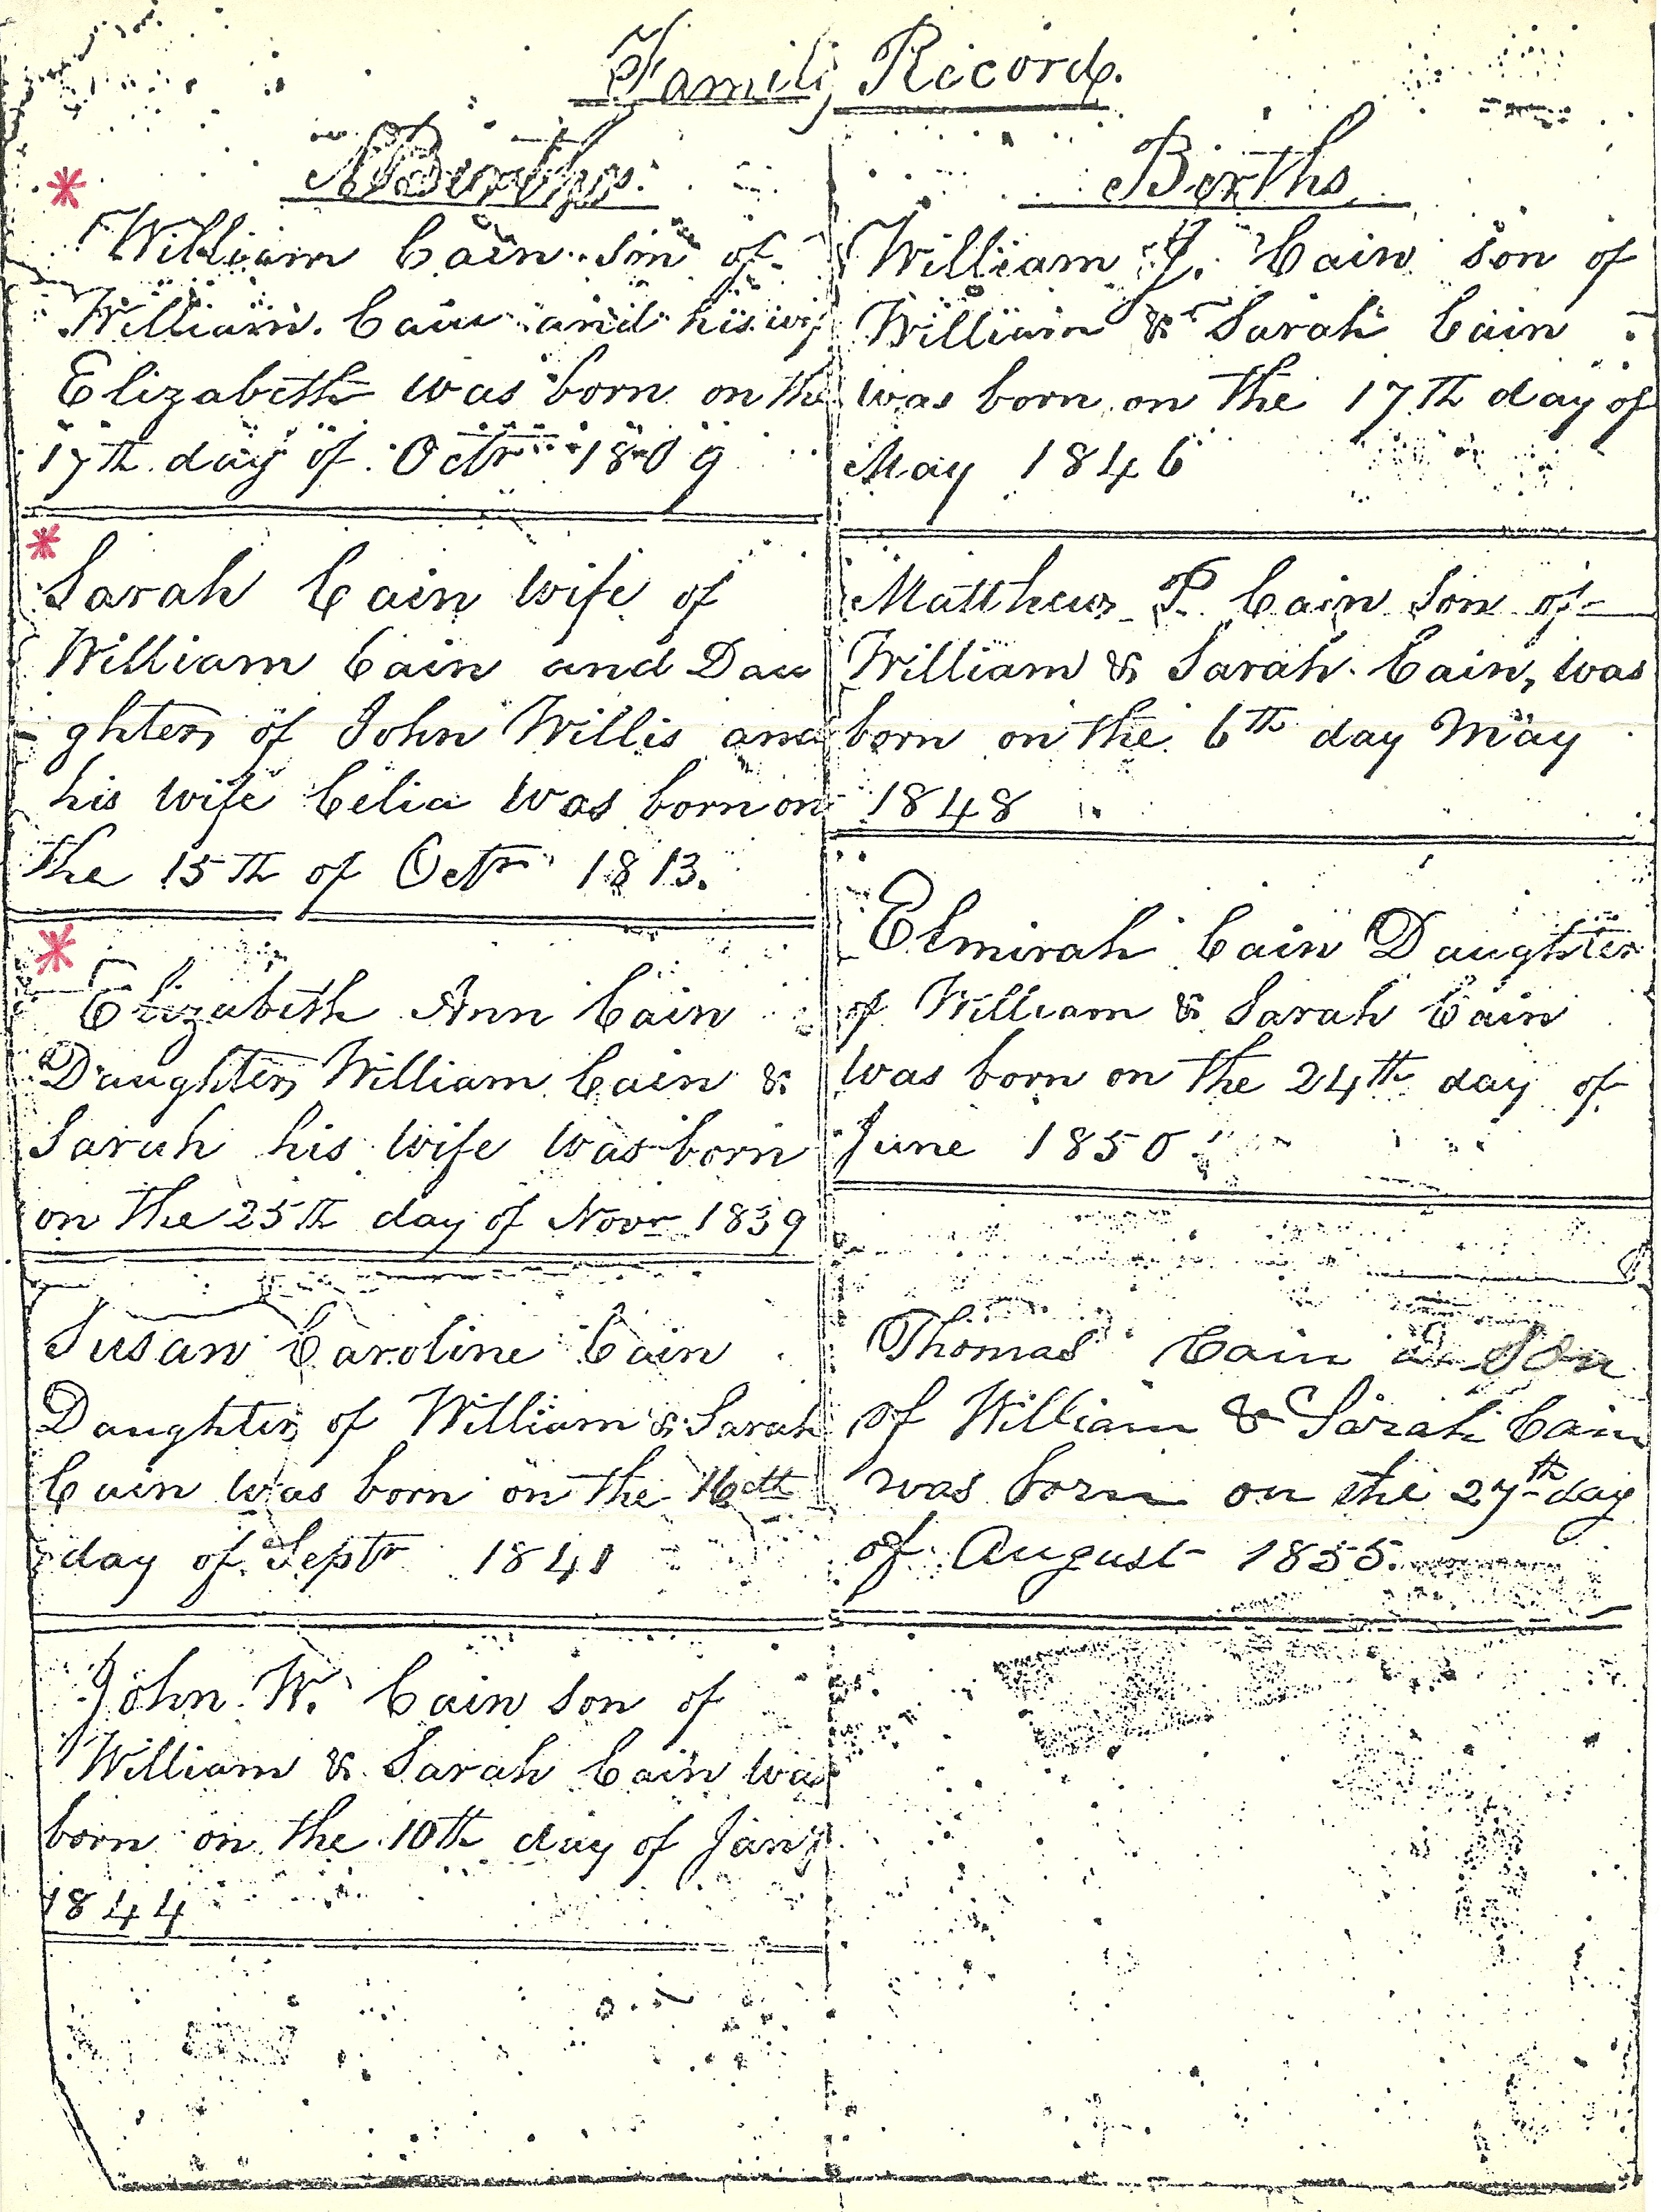 Family Record.
Births.
William Cain son of
William Cain and his wif
Elizabeth was born on the
17th day of Octr 1809
Sarah Cain wife of
William Cain and Dau
ghter of John Willis and
his wife Celia was born on
the 15th of Octr 1813.
Elizabeth Ann Cain
Daughter William Cain &
Sarah his wife was born
on the 25th day of Novr 1839
Susan Caroline Cain
Daughter of William & Sarah
Cain was born on the 16th
day of Septr 1841
John W. Cain son of
William & Sarah Cain was
born on the 10th day of Jany
1844
Births
William J. Cain son of
William & Sarah Cain
was born on the 17th day of
May 1846
Matthew P. Cain Son of
William & Sarah Cain, was
born on the 6th day May
1848
Elmirah Cain Daughter
of William & Sarah Cain
was born on the 24th day of
June 1850
Thomas Cain Son
of William & Sarah Cain
was born on the 27th day
of August 1855.